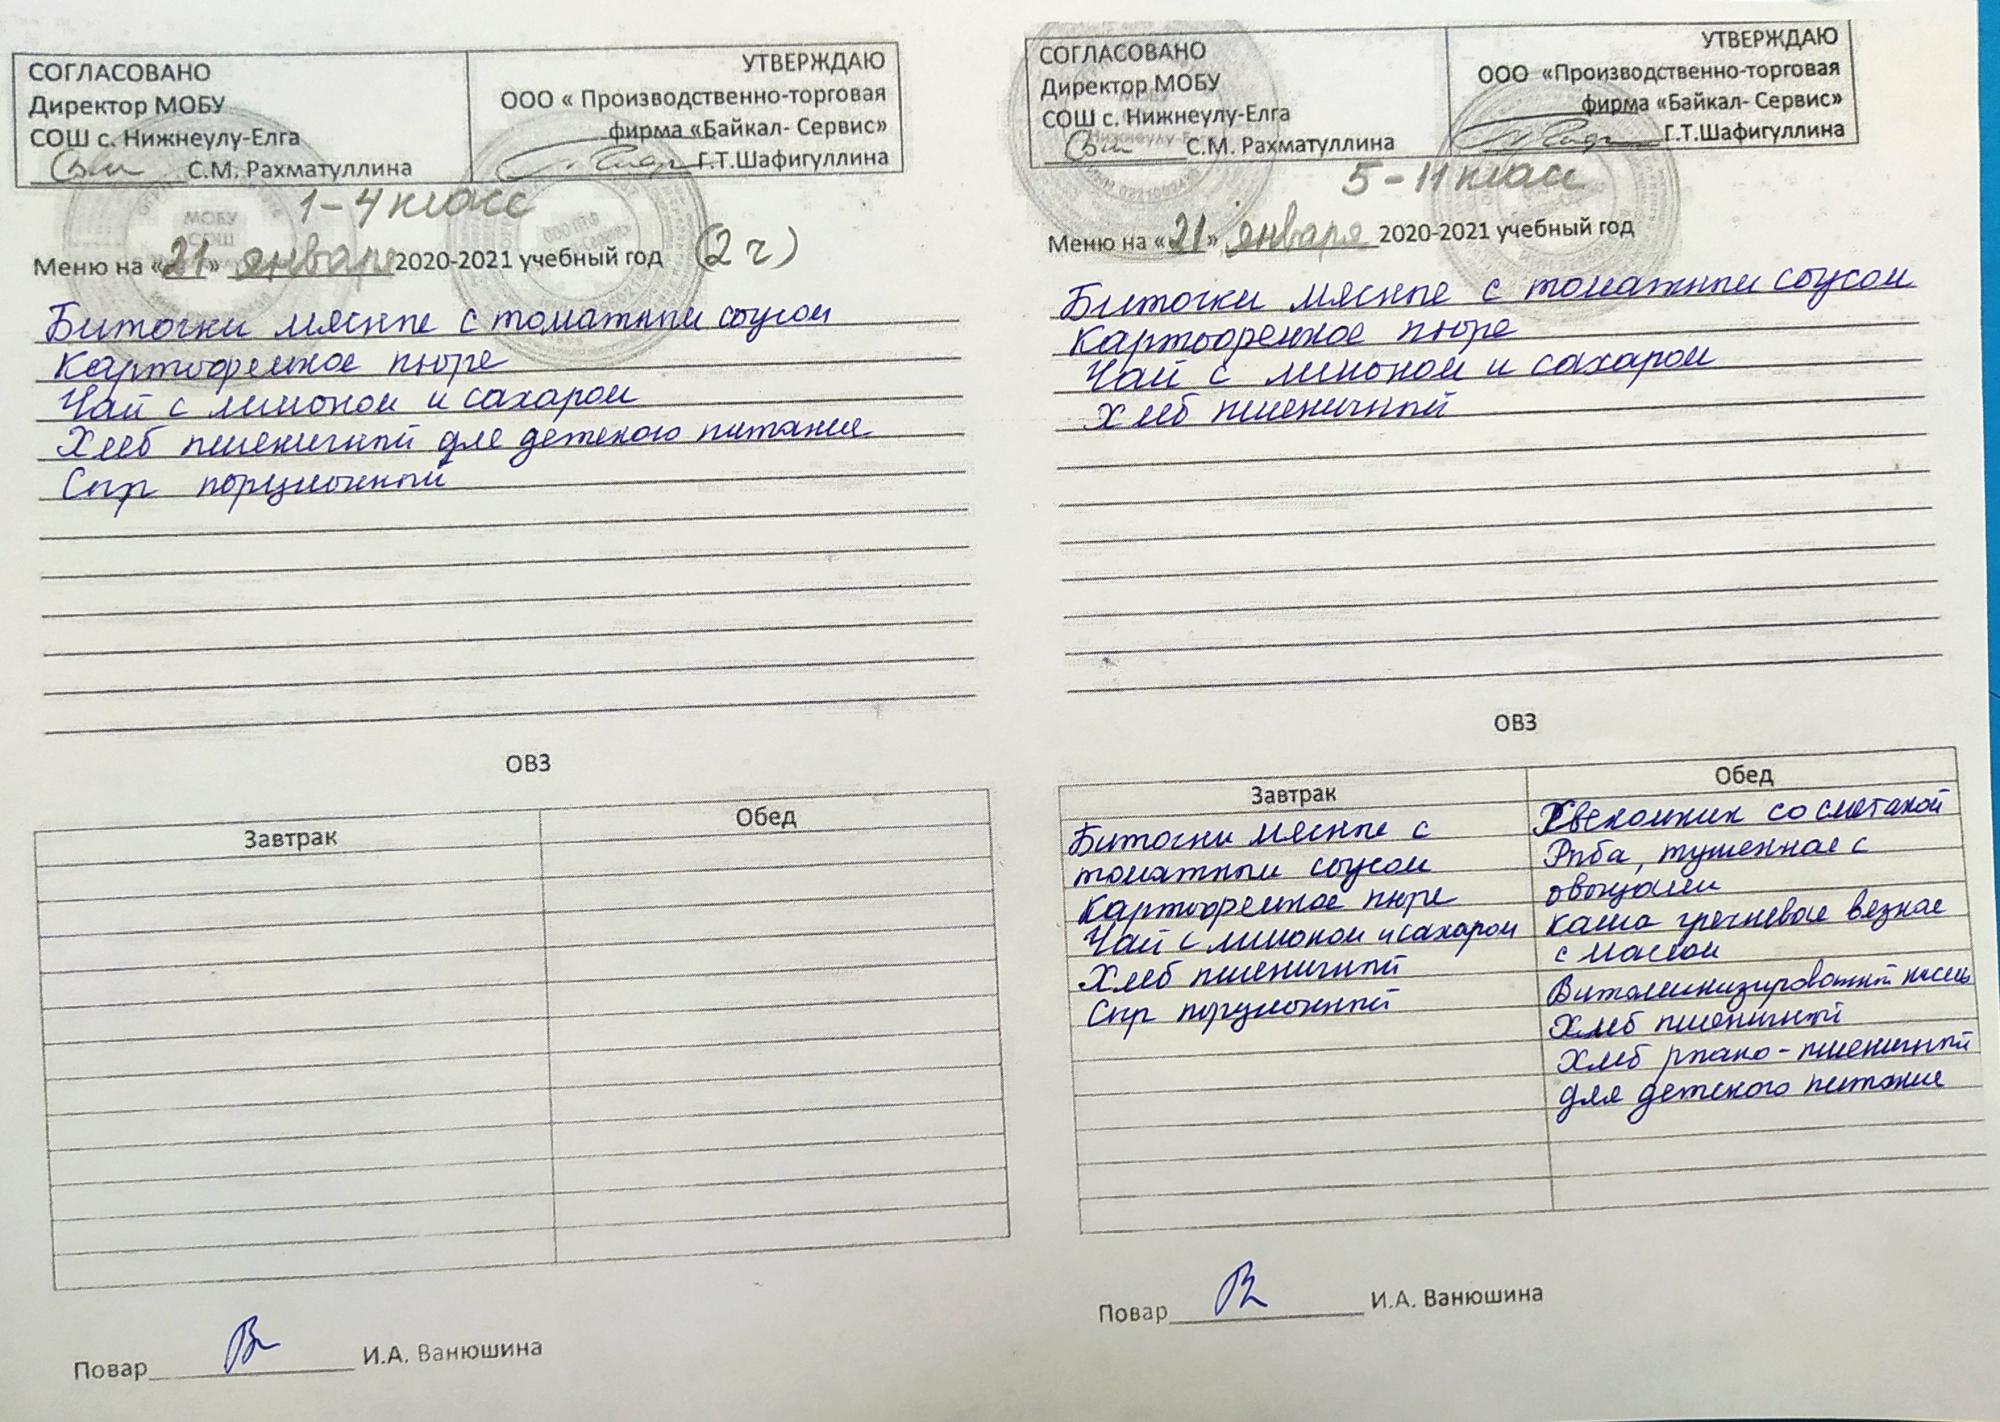 СОГЛАСОВАНО
Директор МОБУ
СОШ с. Нижнеулу-Елга
С.М. Рахматуллина
УТВЕРЖДАЮ
ООО « Производственно-торговая
фирма «Байкал- Сервис»
Г.Т.Шафигуллина
1-4 класс
МОБУ
СОШ
Меню на «21» января 2020-2021 учебный год (2 ч)
Биточки мясные с томатным соусом
Картофельное пюре
Чай с лимоном и сахаром
Хлеб пшеничный для детского питания
Сыр порционный
ОВЗ
Завтрак
Обед
Повар И.А. Ванюшина
СОГЛАСОВАНО
Директор МОБУ
СОШ с. Нижнеулу-Елга
С.М. Рахматуллина
УТВЕРЖДАЮ
ООО «Производственно-торговая
фирма «Байкал- Сервис»
Г.Т.Шафигуллина
5-11 класс
Меню на «21» января 2020-2021 учебный год
Биточки мясные с томатным соусом
Картофельное пюре
Чай с лимоном и сахаром
Хлеб пшеничный
ОВЗ
Завтрак
Биточки мясные с
томатным соусом
Картофельное пюре
Чай с лимоном и сахаром
Хлеб пшеничный
Сыр порционный
Обед
Свекольник со сметаной
Рыба, тушенная с
овощами
каша гречневая вязкая
с маслом
Витаминизированный кисель
Хлеб пшеничный
Хлеб ржано-пшеничный
для детского питания
Повар И.А. Ванюшина